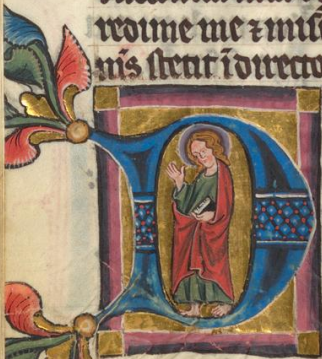 redime me ⁊ mise
nis stetit ī directo
D